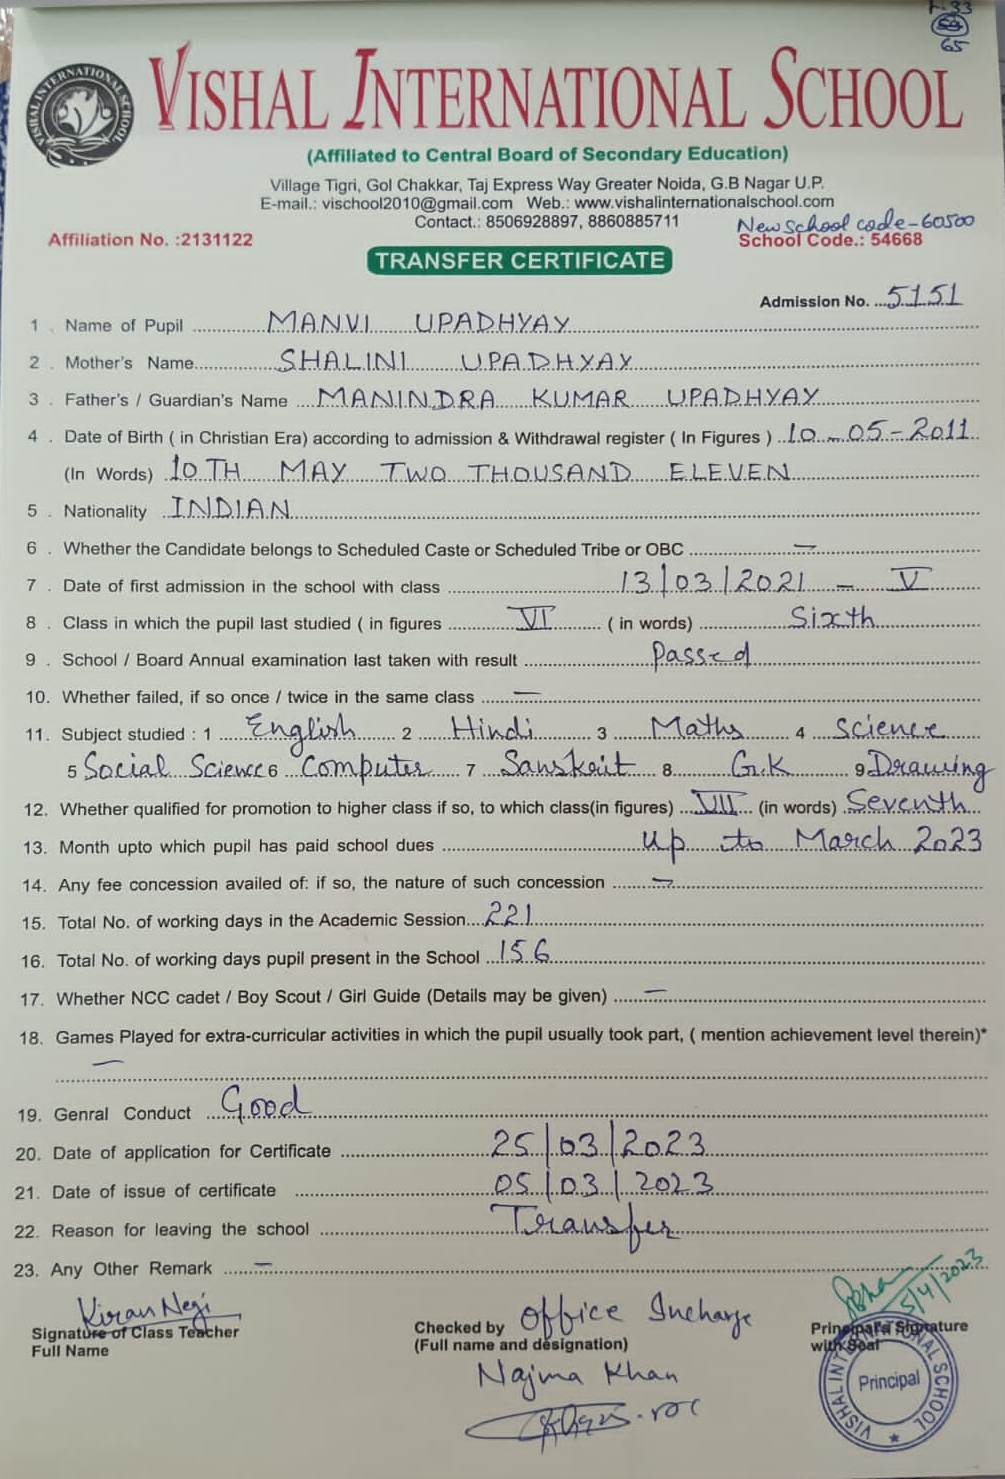 F-33
65
VISHAL INTERNATIONAL SCHOOL
VISHAL INTERNATIONAL SCHOOL
(Affiliated to Central Board of Secondary Education)
Village Tigri, Gol Chakkar, Taj Express Way Greater Noida, G.B Nagar U.P.
E-mail.: vischool2010@gmail.com Web.: www.vishalinternationalschool.com
Contact.: 8506928897, 8860885711
New school code-60500
Affiliation No. :2131122 School Code.: 54668
TRANSFER CERTIFICATE
Admission No. ...5151
1 . Name of Pupil MANVI UPADHYAY
2 . Mother's Name SHALINI UPADHYAY
3 . Father's / Guardian's Name MANINDRA KUMAR UPADHYAY
4 . Date of Birth ( in Christian Era) according to admission & Withdrawal register ( In Figures ) 10-05-2011
(In Words) 10TH MAY TWO THOUSAND ELEVEN
5 . Nationality INDIAN
6 . Whether the Candidate belongs to Scheduled Caste or Scheduled Tribe or OBC —
7 . Date of first admission in the school with class 13/03/2021 - V
8 . Class in which the pupil last studied ( in figures VI ( in words) Sixth
9 . School / Board Annual examination last taken with result Passed
10. Whether failed, if so once / twice in the same class —
11. Subject studied : 1 English 2 Hindi 3 Maths 4 Science
5 Social Science 6 Computer 7 Sanskrit 8 G.K 9 Drawing
12. Whether qualified for promotion to higher class if so, to which class(in figures) VII (in words) Seventh
13. Month upto which pupil has paid school dues up to March 2023
14. Any fee concession availed of: if so, the nature of such concession —
15. Total No. of working days in the Academic Session 221
16. Total No. of working days pupil present in the School 156
17. Whether NCC cadet / Boy Scout / Girl Guide (Details may be given) —
18. Games Played for extra-curricular activities in which the pupil usually took part, ( mention achievement level therein)*
—
19. Genral Conduct Good
20. Date of application for Certificate 25/03/2023
21. Date of issue of certificate 05/03/2023
22. Reason for leaving the school Transfer
23. Any Other Remark —
Kiran Negi
Signature of Class Teacher
Full Name
Checked by Office Incharge
(Full name and designation)
Najma Khan
5/4/2023
Principal's Signature
with Seal
VISHAL INTERNATIONAL SCHOOL
Principal